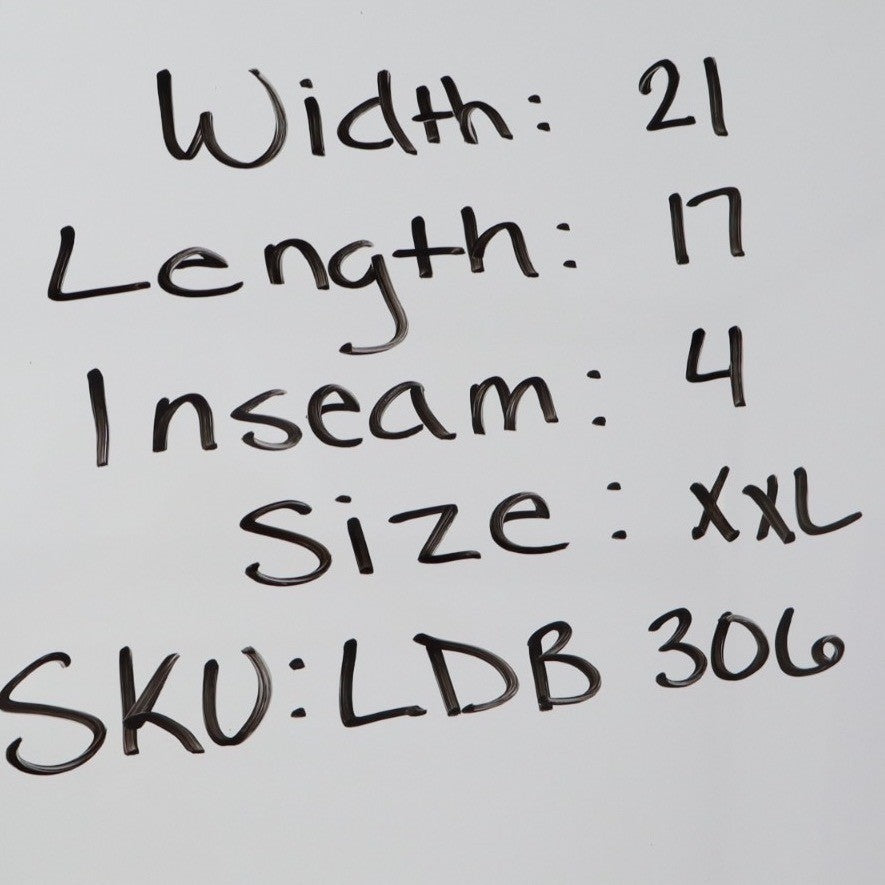 Width: 21
Length: 17
Inseam: 4
Size: XXL
SKU: LDB 306